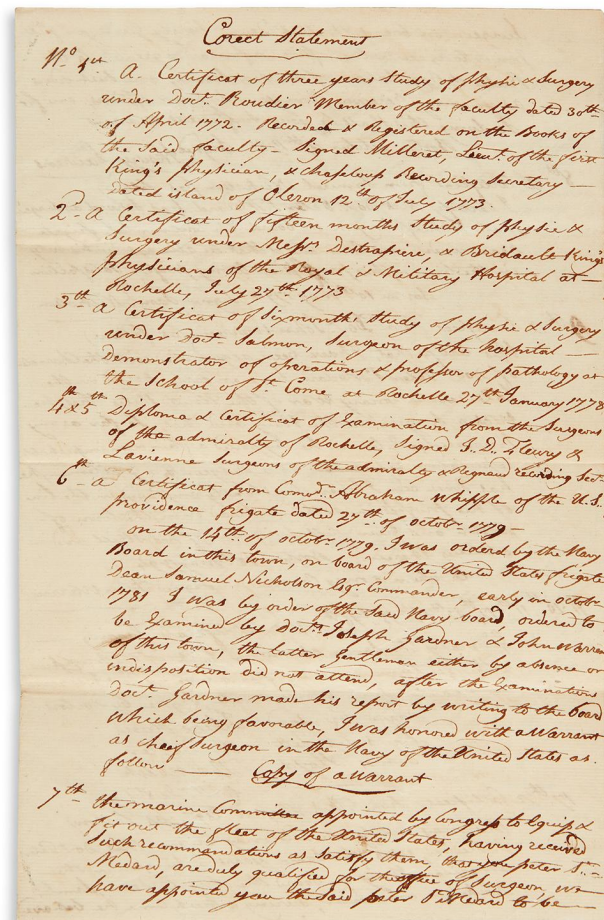 Corect Statement
No. 1st A Certificat of three years Study of physic & Surgery
under Doct. Roudier Member of the faculty dated 30th
of April 1772. Recorded & Registered on the Books of
the Said faculty - Signed Milleret, Lieut. of the first
King's physician, & Chaseloup Recording Secretary -
dated island of Oleron 12th of July 1773.
2d - A Certificat of fifteen months Study of physic &
Surgery under Messrs Destrapiere, & Bridault King's
physicians of the Royal & Military Hospital at -
Rochelle, July 27th 1773
3th - a Certificat of Six months Study of physic & Surgery
under Doct. Salmon, Surgeon of the hospital -
demonstrator of operations & professor of Pathology at
the School of St. Come at Rochelle 27th January 1778
4th & 5th Diploma & Certificat of Examination from the Surgeons
of the admiralty of Rochelle, Signed J. D. Fleury &
Lavienne Surgeons of the admiralty & Regnaud recording Secy.
6th - a Certificat from Comod. Abraham Whipple of the U.S.
providence frigate dated 27th of octobr. 1779 -
on the 14th of octobr. 1779. I was orderd by the Navy
Board in this town, on board of the United States frigate
Dean Samuel Nicholson Esqr. Commander, early in octobr.
1781 I was by order of the Said Navy board, ordered to
be Examined by Doctrs. Joseph Gardner & John Warren
of this town, the latter Gentleman either by absence or
indisposition did not attend, after the Examinations
Doct. Gardner made his report by writing to the board
which being favorable, I was honored with a Warrant
as cheif Surgeon in the Navy of the United States as.
follow -
Copy of a Warrant
7th - the marine Committee appointed by Congress to Equip &
fit out the fleet of the United States, having received
Such recommendations as Satisfy them, that you peter St.
Medard, are duly qualified for the office of Surgeon, we
have appointed you the Said peter St Medard to be -